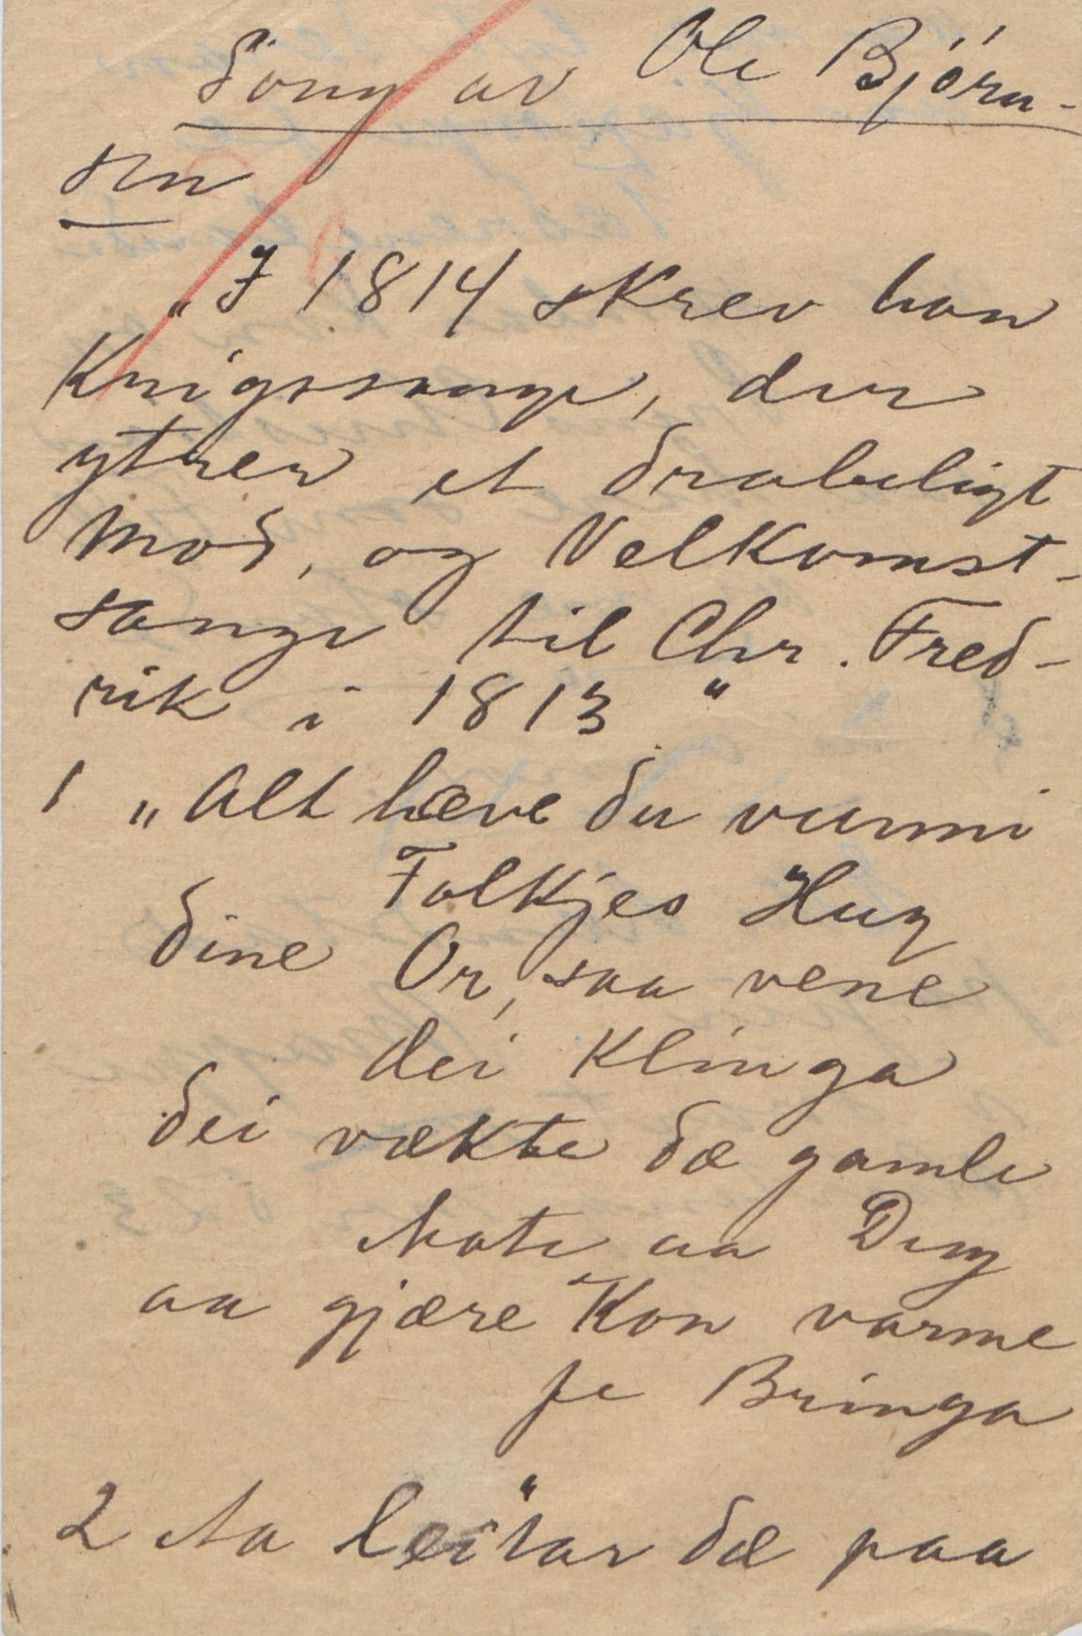 Song av Ole Bjørn-
sen
"I 1814 skrev han
Krigssange, der
ytrer et drabeligt
Mod, og Velkomst-
sange til Chr. Fred-
rik i 1813"
1 "Alt hæve du vunni
Folkjes Hug
dine Or, saa vene
dei Klinga
dei vækte dæ gamle
Mote aa Dug
aa gjære Kon varme
fe Bringa
2 Aa leitar dæ paa